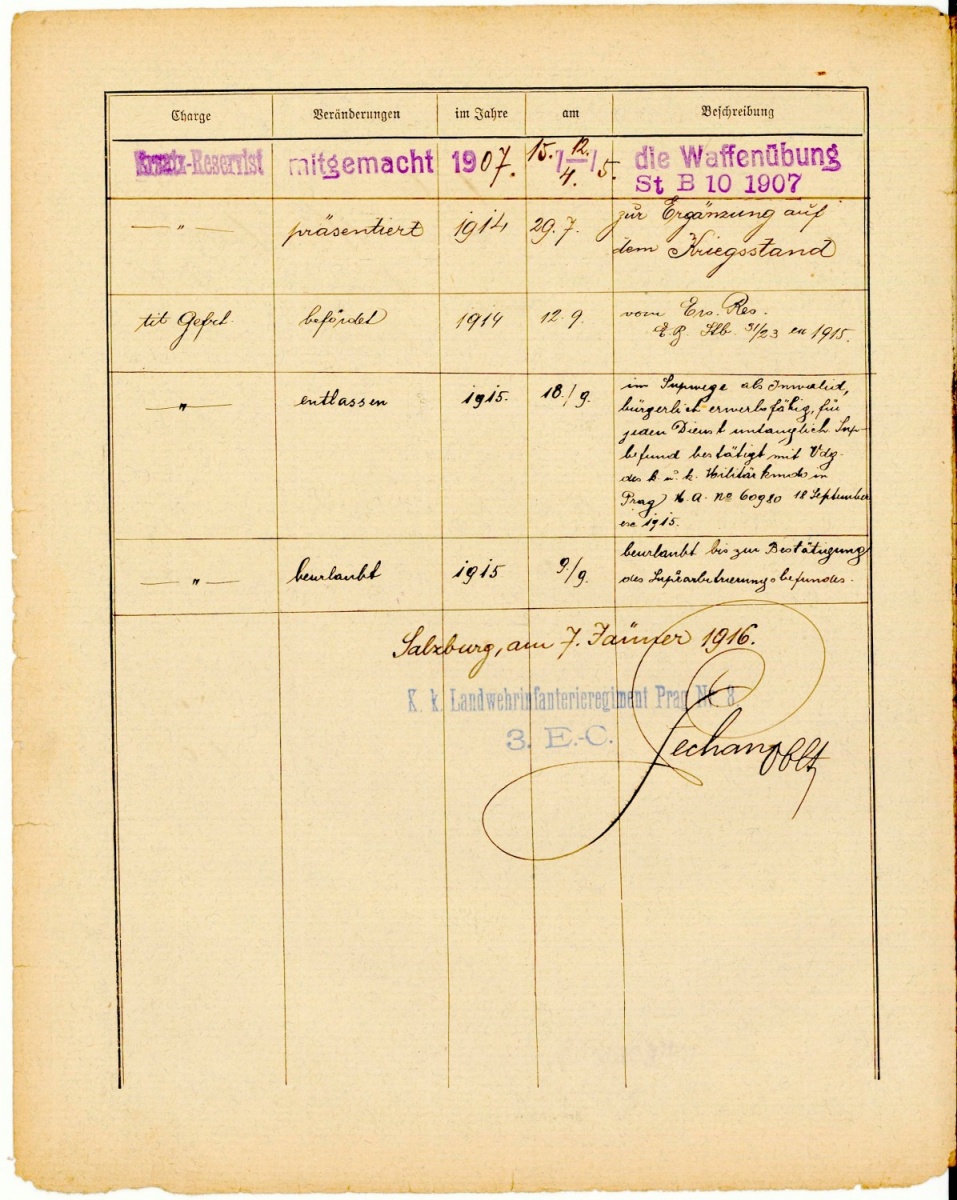 Charge Veränderungen im Jahre am Beschreibung
Ersatz-Reservist mitgemacht 1907. 15./4. 12./5. die Waffenübung
St B 10 1907
— " — präsentiert 1914 29. 7. zur Ergänzung auf
dem Kriegsstand
tit Gefrt. befördet 1914 12. 9. vom Ers. Res.
E.B. Stb. 31/23 ex 1915.
— " — entlassen 1915. 18./9. im Supwege als Invalid,
bürgerlich erwerbsfähig, für
jeden Dienst untauglich Sup-
befund bestätigt mit Vdg.
des k. u. k. Militärkmdo in
Prag M.A. No 60980 18 September
ex 1915.
— " — beurlaubt 1915 9./9. beurlaubt bis zur Bestätigung
des Suparbitrierungsbefundes.
Salzburg, am 7. Jänner 1916.
K. k. Landwehrinfanterieregiment Prag Nr. 8
3. E.-C.
Oblt